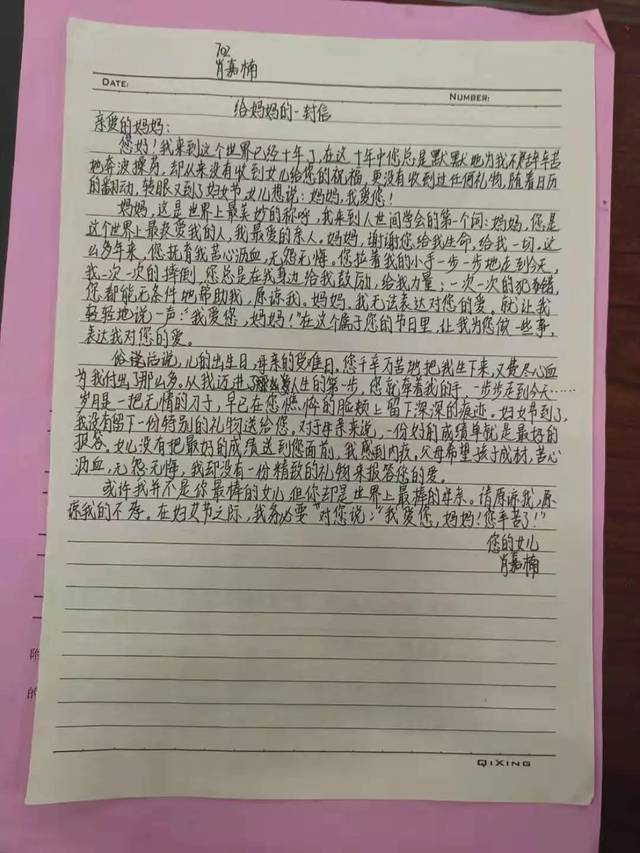 702
肖嘉楠
DATE:
NUMBER:
给妈妈的一封信
亲爱的妈妈:
您好!我来到这个世界已经十年了,在这十年中您总是默默地为我不辞辛苦
地奔波操劳,却从来没有收到女儿给您的祝福,更没有收到过任何礼物,随着日历
的翻动,转眼又到了妇女节,女儿想说:妈妈,我爱您!
妈妈,这是世界上最美妙的称呼,我来到人世间学会的第一个词:妈妈,您是
这个世界上最疼爱我的人,我最爱的亲人。妈妈,谢谢您给我生命,给我一切。这
么多年来,您抚育我苦心沥血,无怨无悔。您拉着我的小手一步一步地走到今天,
我一次一次的摔倒,您总是在我身边给我鼓励,给我力量;一次一次的犯错,
您都能无条件地帮助我,原谅我。妈妈,我无法表达对您的爱。就让我
轻轻地说一声:“我爱您,妈妈!”在这个属于您的节日里,让我为您做一些事,
表达我对您的爱。
俗话说,儿的出生日,母亲的受难日。您千辛万苦地把我生下来,又费尽心血
为我付出了那么多。从我迈进了人生的第一步,您就牵着我的手,一步步走到今天……
岁月是一把无情的刀子,早已在您憔悴的脸颊上留下深深的痕迹。妇女节到了,
我没有留下一份特别的礼物送给您。对于母亲来说,一份好的成绩单就是最好的
报答。女儿没有把最好的成绩送到您面前,我感到内疚。父母希望孩子成材,苦心
沥血,无怨无悔,我却没有一份精致的礼物来报答您的爱。
或许我并不是你最棒的女儿,但你却是世界上最棒的母亲。请原谅我,原
谅我的不孝。在妇女节之际,我务必要对您说:“我爱您,妈妈!您辛苦了!”
您的女儿
肖嘉楠
QIXING
附
的